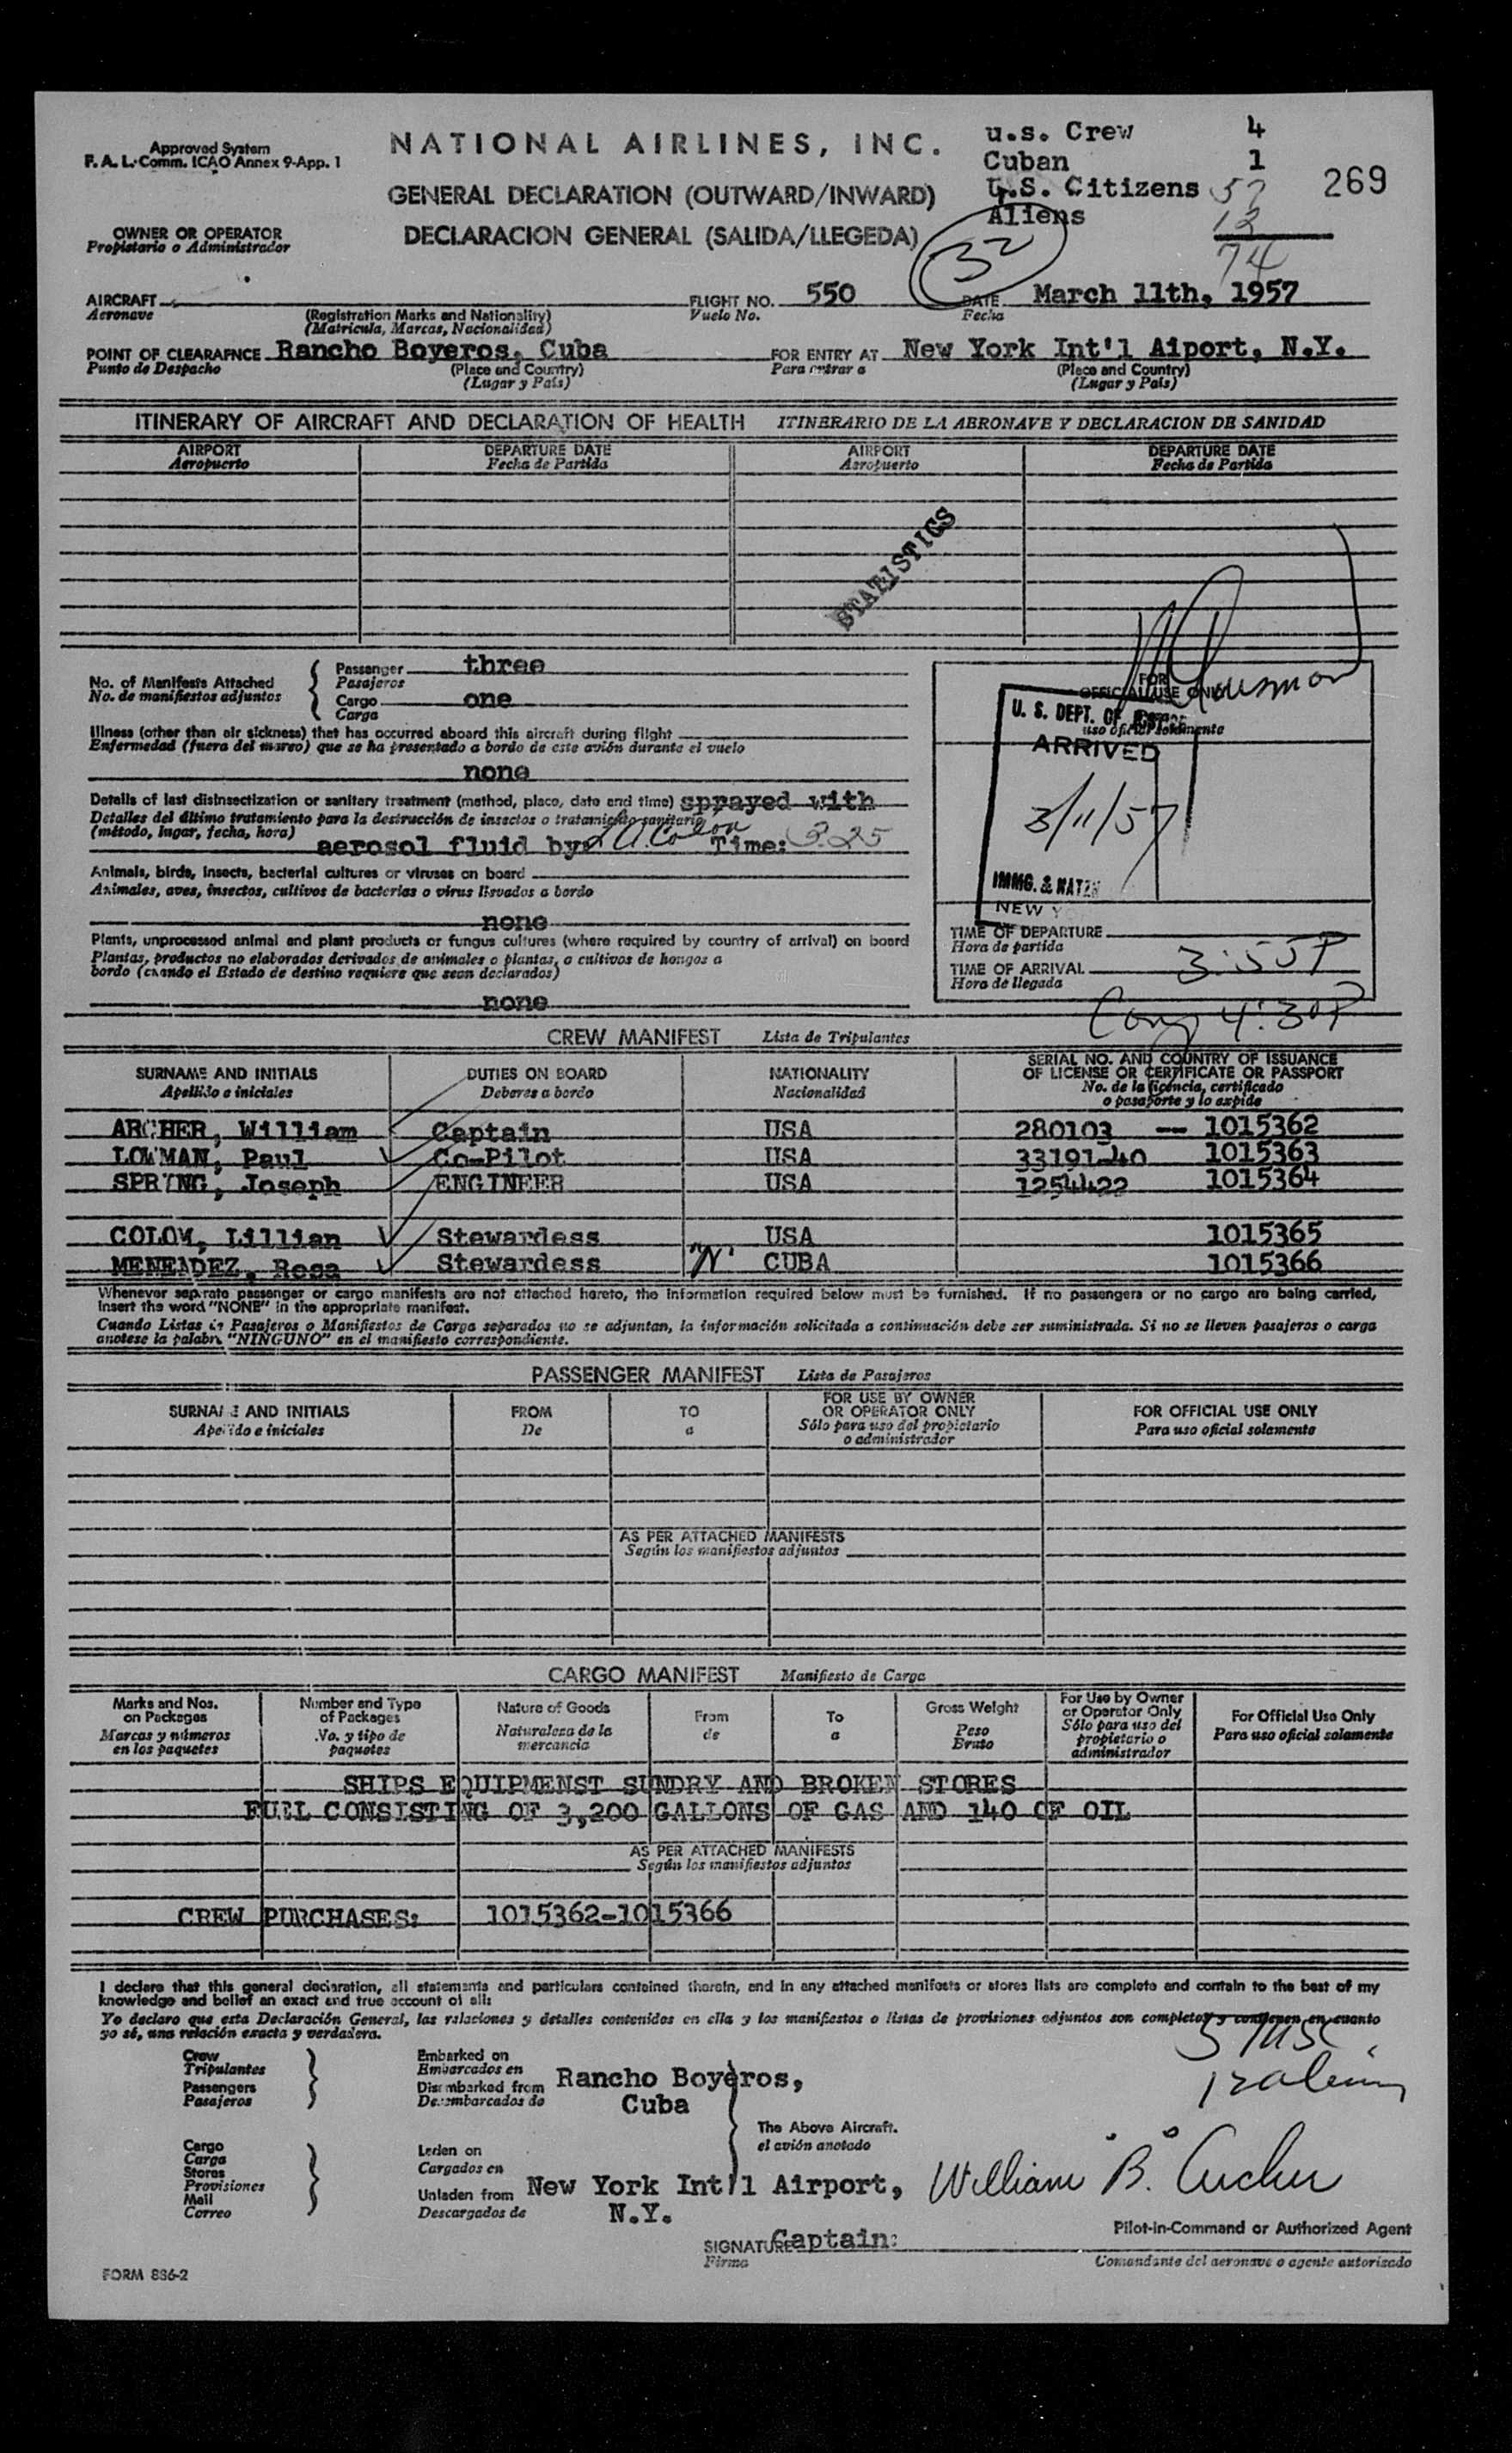 Approved System
F. A. L. Comm. ICAO Annex 9-App. 1
NATIONAL AIRLINES, INC.
GENERAL DECLARATION (OUTWARD/INWARD)
DECLARACION GENERAL (SALIDA/LLEGEDA)
u.s. Crew 4
Cuban 1
U.S. Citizens 57
Aliens 12
74
269
32
OWNER OR OPERATOR
Propietario o Administrador
AIRCRAFT
Aeronave
(Registration Marks and Nationality)
(Matricula, Marcas, Nacionalidad)
FLIGHT NO. 550
Vuelo No.
DATE March 11th, 1957
Fecha
POINT OF CLEARAFNCE Rancho Boyeros, Cuba
Punto de Despacho
(Place and Country)
(Lugar y País)
FOR ENTRY AT New York Int'l Aiport, N.Y.
Para entrar a
(Place and Country)
(Lugar y País)
ITINERARY OF AIRCRAFT AND DECLARATION OF HEALTH ITINERARIO DE LA AERONAVE Y DECLARACION DE SANIDAD
AIRPORT DEPARTURE DATE AIRPORT DEPARTURE DATE
Aeropuerto Fecha de Partida Aeropuerto Fecha de Partida
STATISTICS
No. of Manifests Attached
No. de manifiestos adjuntos
Passenger three
Pasajeros
Cargo one
Carga
Illness (other than air sickness) that has occurred aboard this aircraft during flight
Enfermedad (fuera del mareo) que se ha presentado a bordo de este avión durante el vuelo
none
Details of last disinsectization or sanitary treatment (method, place, date and time) sprayed with
Detalles del último tratamiento para la destrucción de insectos o tratamiento sanitario
(método, lugar, fecha, hora)
aerosol fluid by: Colon Time: 3.25
Animals, birds, insects, bacterial cultures or viruses on board
Animales, aves, insectos, cultivos de bacterias o virus llevados a bordo
none
Plants, unprocessed animal and plant products or fungus cultures (where required by country of arrival) on board
Plantas, productos no elaborados derivados de animales o plantas, o cultivos de hongos a
bordo (cuando el Estado de destino requiere que sean declarados)
none
FOR
OFFICIAL USE ONLY
uso oficial solamente
U. S. DEPT. OF
ARRIVED
3/11/57
IMMG. & NATZN
NEW
TIME OF DEPARTURE
Hora de partida
TIME OF ARRIVAL 3:55P
Hora de llegada
4:30P
CREW MANIFEST Lista de Tripulantes
SURNAME AND INITIALS
Apellido e iniciales
DUTIES ON BOARD
Deberes a bordo
NATIONALITY
Nacionalidad
SERIAL NO. AND COUNTRY OF ISSUANCE
OF LICENSE OR CERTIFICATE OR PASSPORT
No. de la licencia, certificado
o pasaporte y lo expide
ARCHER, William Captain USA 280103 -- 1015362
LOWMAN, Paul Co-Pilot USA 33191-40 1015363
SPRING, Joseph ENGINEER USA 1254422 1015364
COLOM, Lillian Stewardess USA 1015365
MENENDEZ, Rosa Stewardess "N" CUBA 1015366
Whenever separate passenger or cargo manifests are not attached hereto, the information required below must be furnished. If no passengers or no cargo are being carried,
insert the word "NONE" in the appropriate manifest.
Cuando Listas de Pasajeros o Manifiestos de Carga separados no se adjuntan, la información solicitada a continuación debe ser suministrada. Si no se lleven pasajeros o carga
anotese la palabra "NINGUNO" en el manifiesto correspondiente.
PASSENGER MANIFEST Lista de Pasajeros
SURNAME AND INITIALS
Apellido e iniciales
FROM
De
TO
a
FOR USE BY OWNER
OR OPERATOR ONLY
Sólo para uso del propietario
o administrador
FOR OFFICIAL USE ONLY
Para uso oficial solamente
AS PER ATTACHED MANIFESTS
Según los manifiestos adjuntos
CARGO MANIFEST Manifiesto de Carga
Marks and Nos.
on Packages
Marcas y números
en los paquetes
Number and Type
of Packages
No. y tipo de
paquetes
Nature of Goods
Naturaleza de la
mercancia
From
de
To
a
Gross Weight
Peso
Bruto
For Use by Owner
or Operator Only
Sólo para uso del
propietario o
administrador
For Official Use Only
Para uso oficial solamente
SHIPS EQUIPMENST SUNDRY AND BROKEN STORES
FUEL CONSISTING OF 3,200 GALLONS OF GAS AND 140 OF OIL
AS PER ATTACHED MANIFESTS
Según los manifiestos adjuntos
CREW PURCHASES: 1015362-1015366
I declare that this general declaration, all statements and particulars contained therein, and in any attached manifests or stores lists are complete and contain to the best of my
knowledge and belief an exact and true account of all:
Yo declaro que esta Declaración General, las relaciones y detalles contenidos en ella y los manifiestos o listas de provisiones adjuntos son completos y contienen en cuanto
yo sé, una relación exacta y verdadera.
Crew
Tripulantes
Passengers
Pasajeros
Embarked on
Embarcados en
Disembarked from
Desembarcados de
Rancho Boyeros,
Cuba
The Above Aircraft.
el avión anotado
Cargo
Carga
Stores
Provisiones
Mail
Correo
Laden on
Cargados en
Unladen from
Descargados de
New York Int'l Airport,
N.Y.
William B. Archer
Pilot-in-Command or Authorized Agent
SIGNATURE Captain:
Firma
Comandante del aeronave o agente autorizado
FORM 886-2